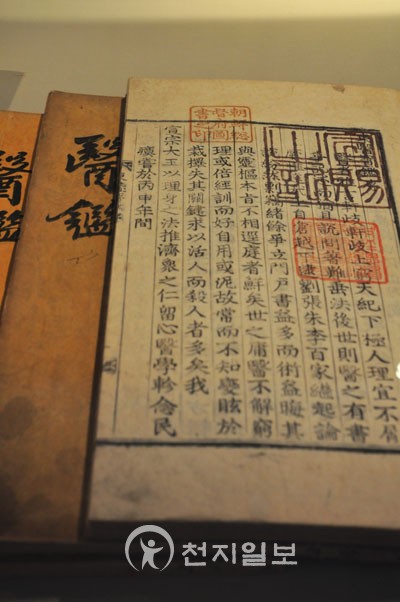 醫鑑
醫鑑
朝鮮總督府圖書之印
岐軒岐上窮天紀下極人理宜不屑
且說問著難垂法後世則醫之有書
自倉越下逮劉張朱李百家繼起論
剽竊緖餘爭立門戶書益多而術益晦其
與靈樞本旨不相逕庭者鮮矣世之庸醫不解窮
理或倍經訓而好自用或泥故常而不知變眩於
裁擇失其關鍵求以活人而殺人者多矣我
宣宗大王以理身之法推濟衆之仁留心醫學軫念民
瘼嘗於丙申年間
천지일보